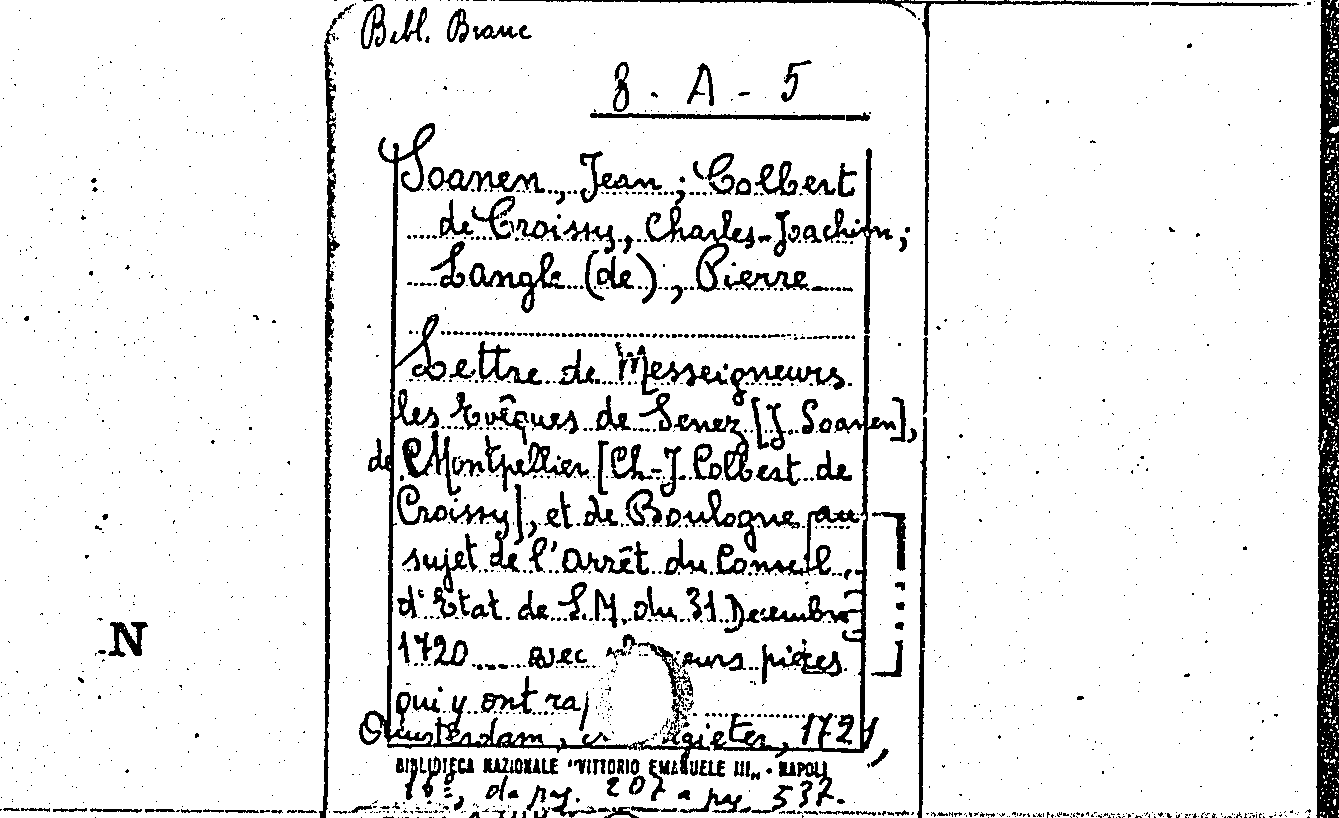 Bibl. Branc
8 - A - 5
Soanen, Jean; Colbert
de Croissy, Charles-Joachim;
Langle (de), Pierre
Lettre de Messeigneurs
les Evêques de Senez [J. Soanen],
de Montpellier [Ch-J. Colbert de
Croissy], et de Boulogne au
sujet de l'Arrêt du Conseil
d'Etat de S.M. du 31 Decembre
1720.... avec pièces
qui y ont
N
Amsterdam, 1721,
BIBLIOTECA NAZIONALE "VITTORIO EMANUELE III" - NAPOLI
16º, da pag. 207 a pag. 537.